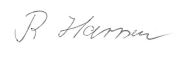 R Hansen